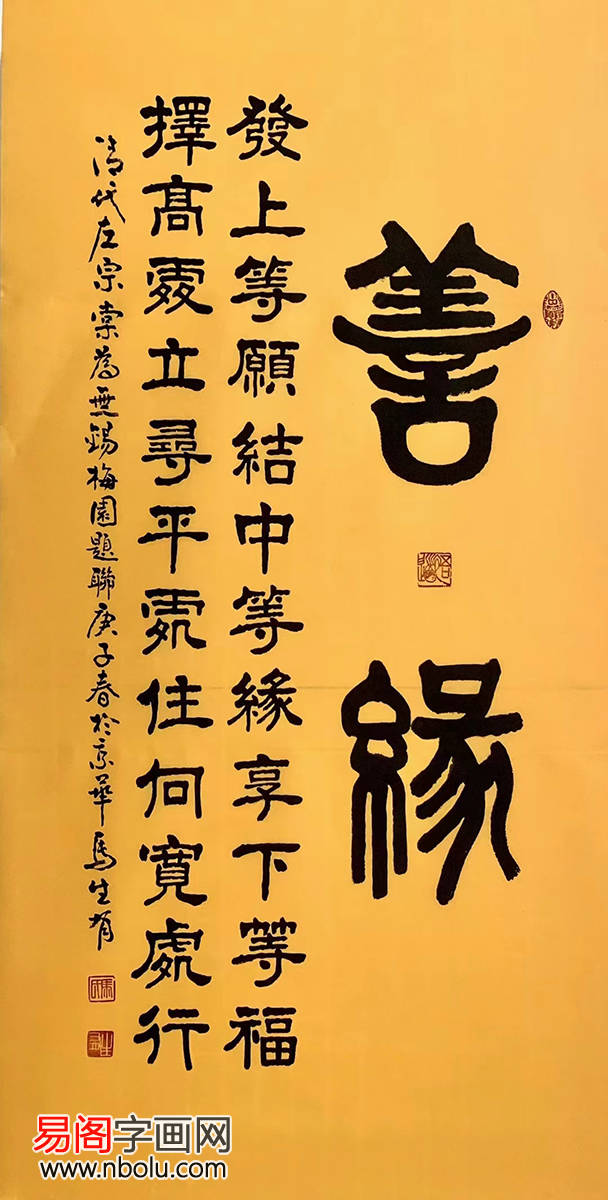 善緣
發上等願結中等緣享下等福
擇高處立尋平處住向寬處行
清代左宗棠為無錫梅園題聯庚子春於京華馬生
易阁字画网
www.nbolu.com